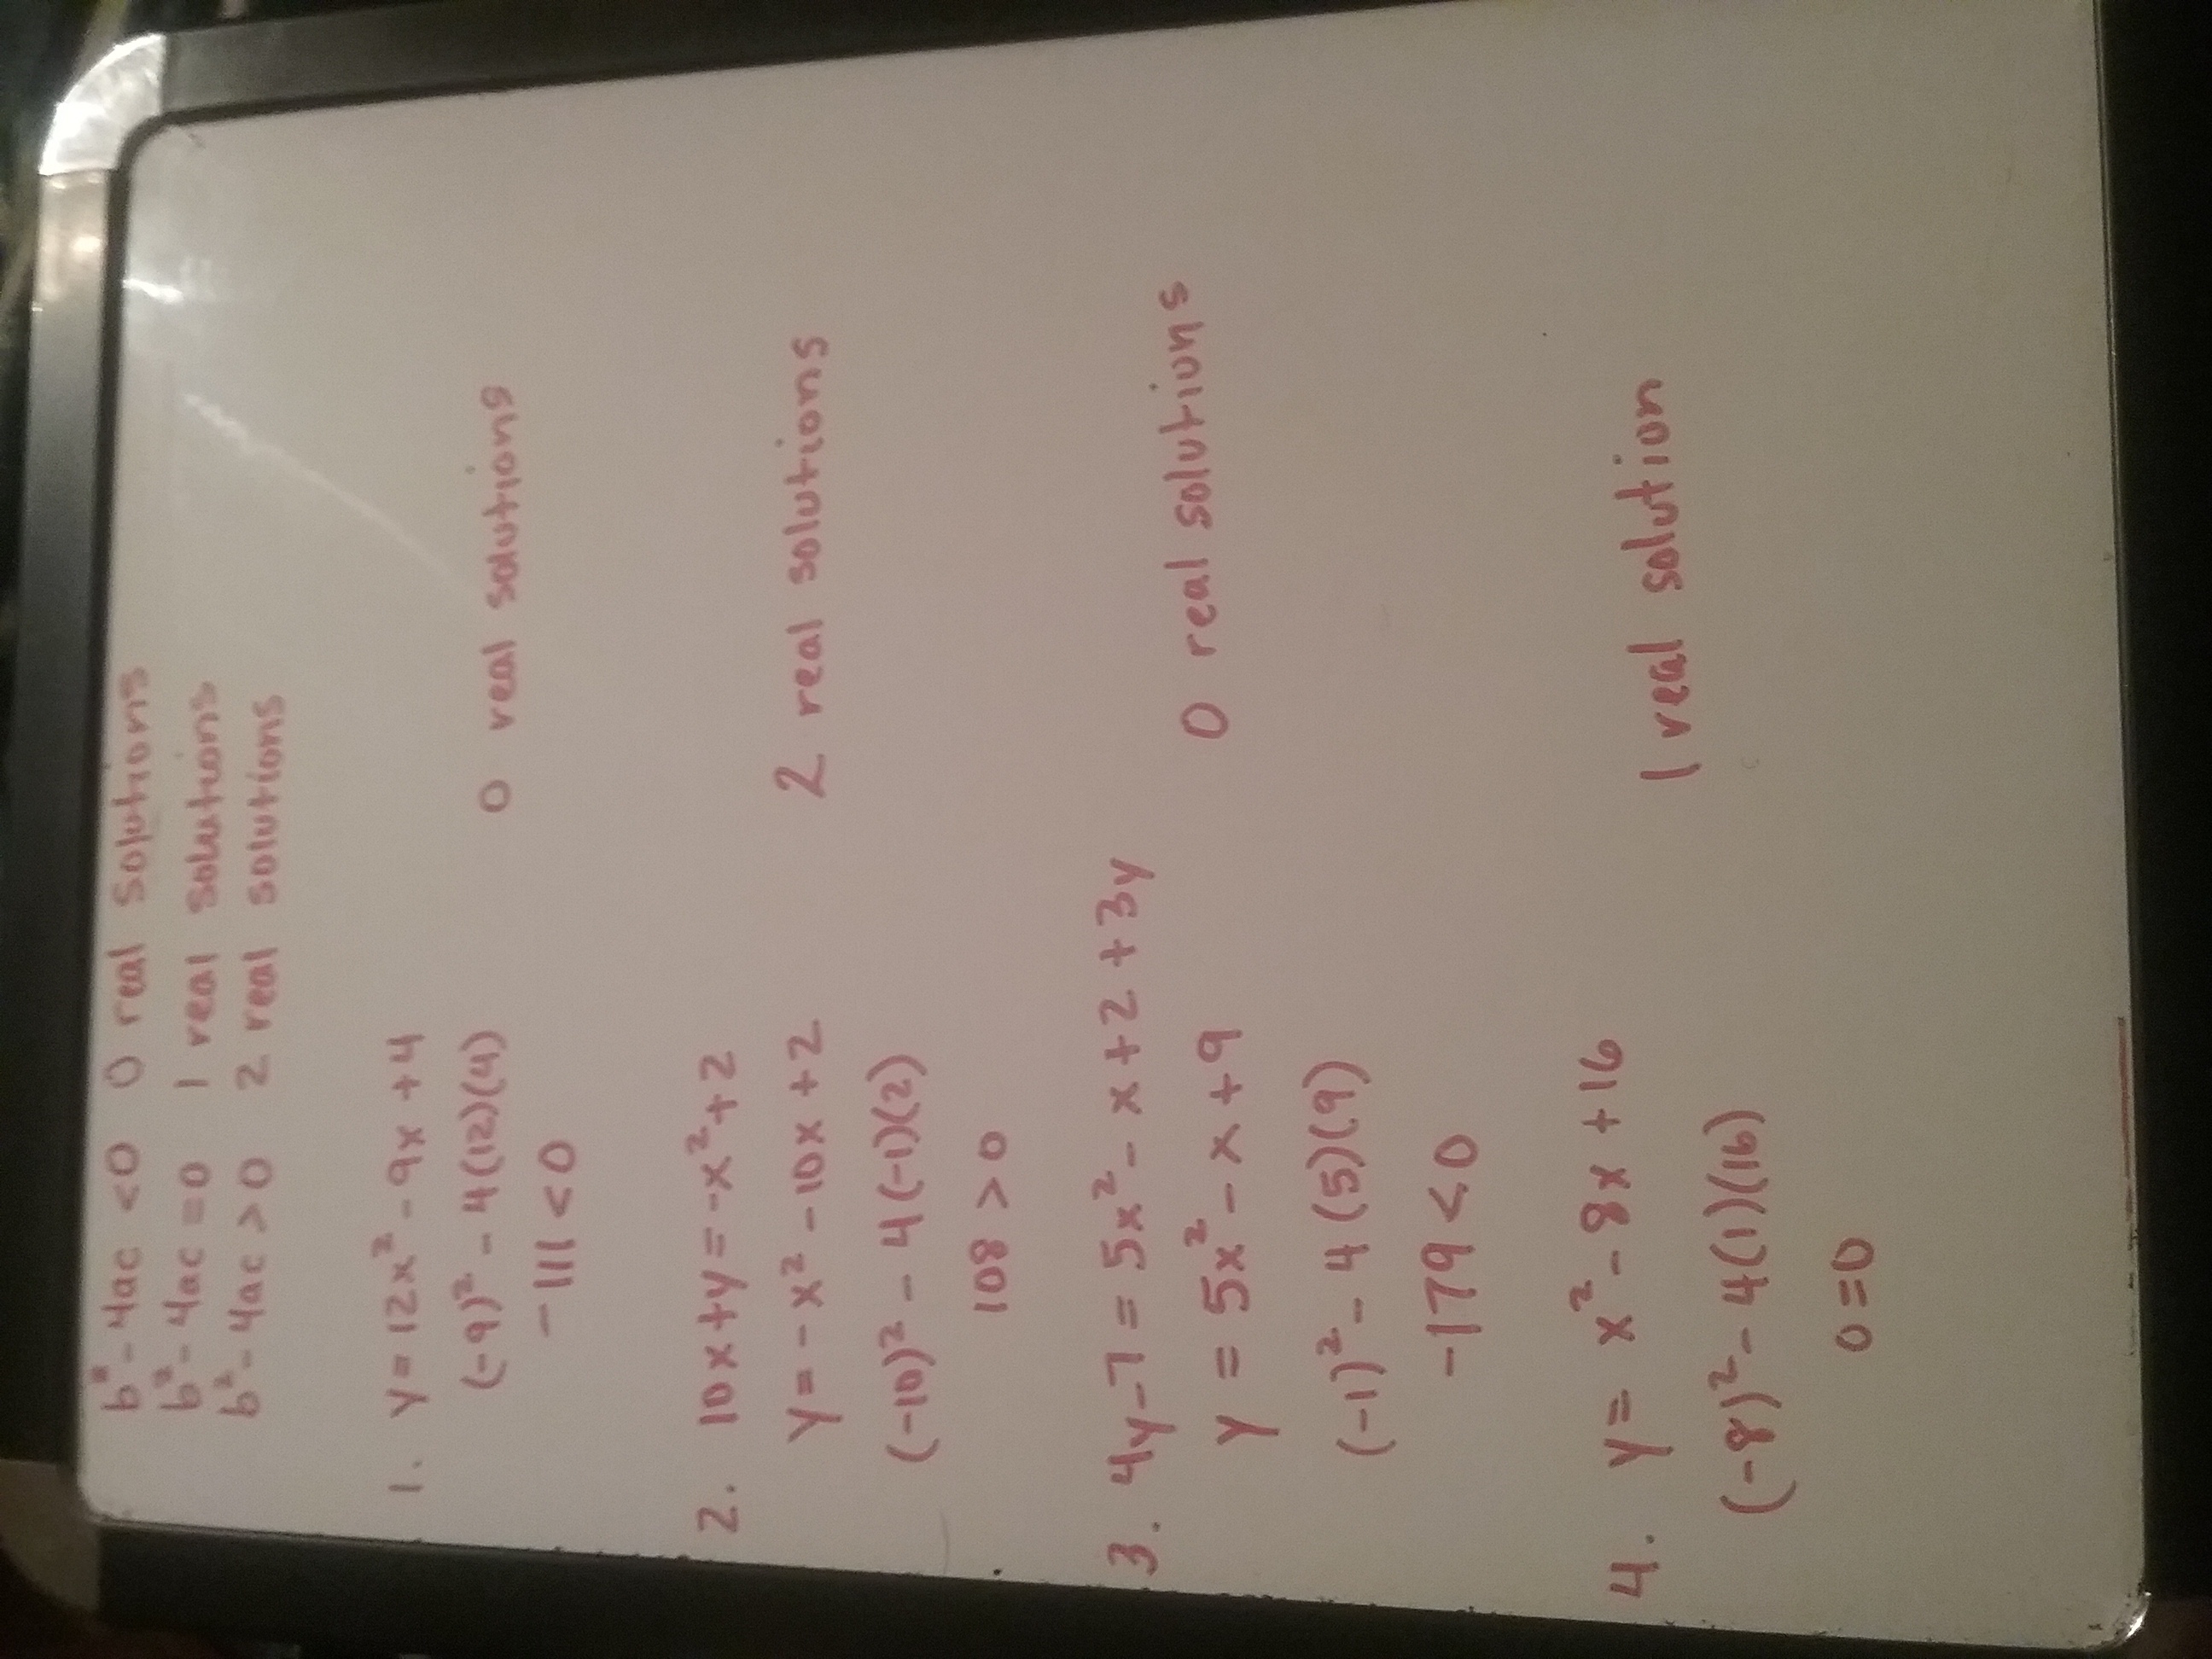 b² - 4ac < 0 0 real solutions
b² - 4ac = 0 1 real solutions
b² - 4ac > 0 2 real solutions
1. y = 12x² - 9x + 4
(-9)² - 4(12)(4) 0 real solutions
-111 < 0
2. 10x + y = -x² + 2
y = -x² - 10x + 2 2 real solutions
(-10)² - 4(-1)(2)
108 > 0
3. 4y - 7 = 5x² - x + 2 + 3y
y = 5x² - x + 9 0 real solutions
(-1)² - 4(5)(9)
-179 < 0
4. y = x² - 8x + 16 1 real solution
(-8)² - 4(1)(16)
0 = 0